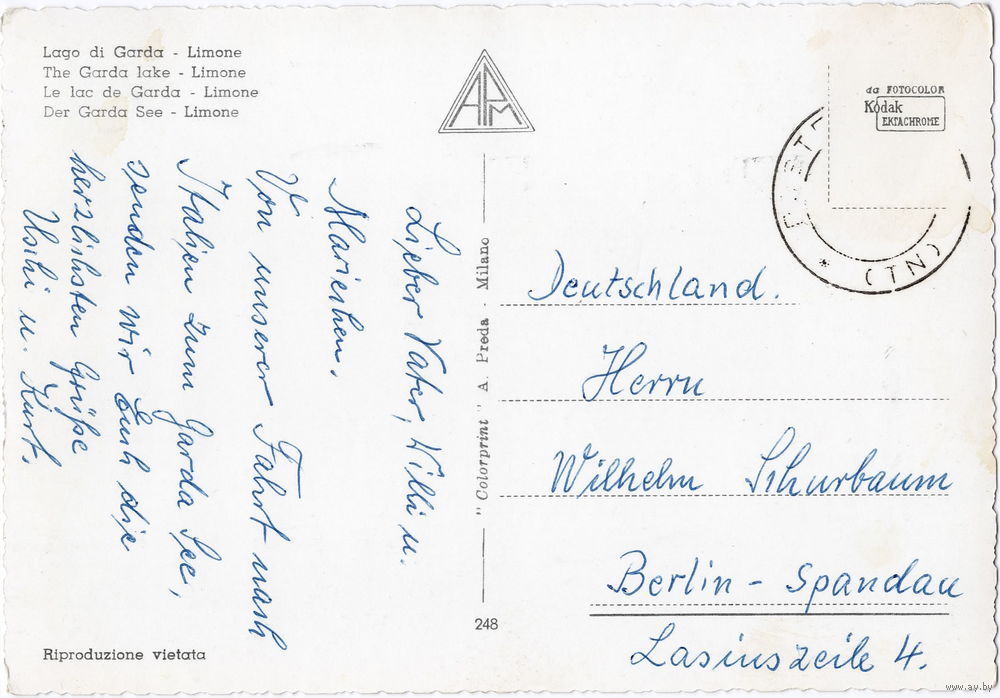 Lago di Garda - Limone
The Garda lake - Limone
Le lac de Garda - Limone
Der Garda See - Limone
APM
da FOTOCOLOR
Kodak
EKTACHROME
(TN)
*
Lieber Vater, Willi u.
Mariechen.
Von unserer Fahrt nach
Italien zum Garda See,
senden wir Euch die
herzlichsten Grüße
Uschi u. Kurt.
"Colorprint" A. Preda - Milano
Deutschland.
Herrn
Wilhelm Schurbaum
Berlin - Spandau
Lasiuszeile 4.
248
Riproduzione vietata
www.ay.by